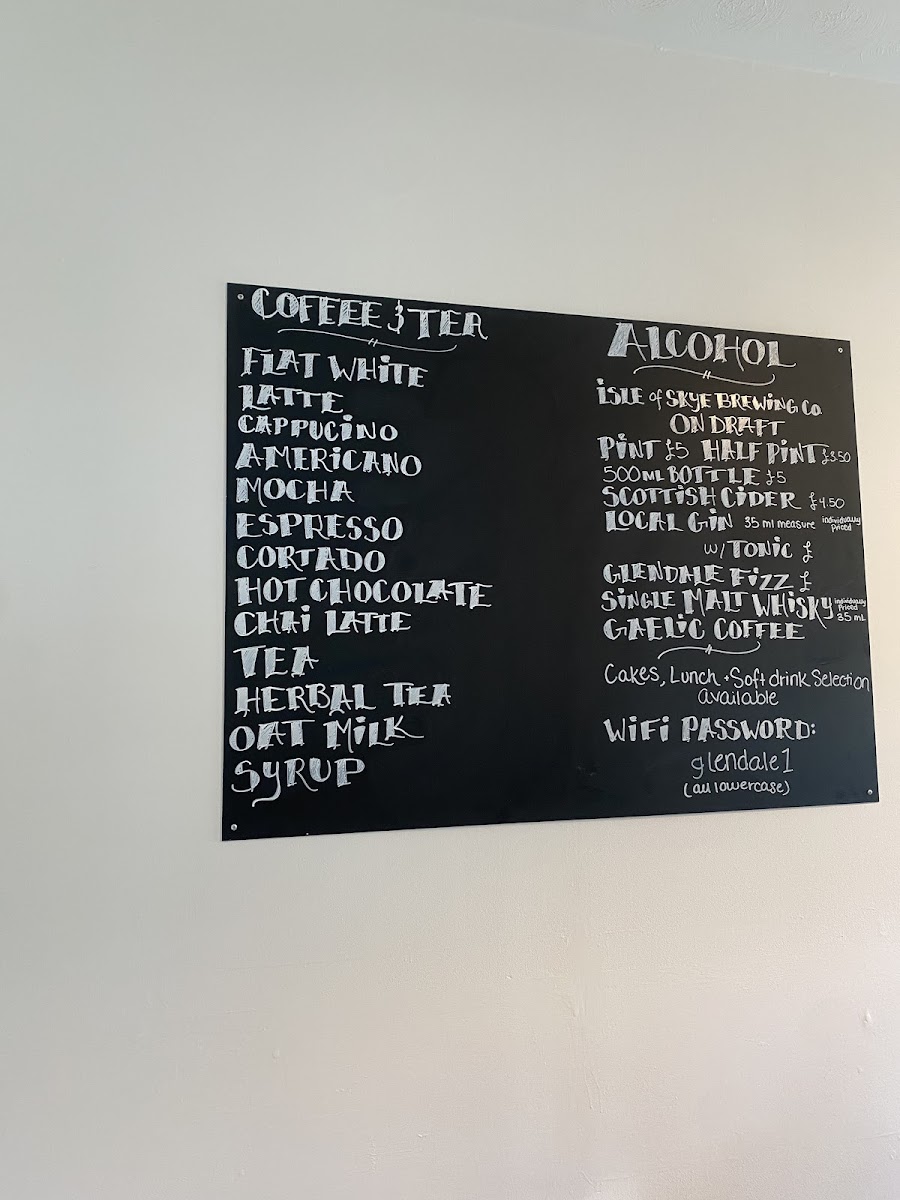 COFFEE & TEA
FLAT WHITE
LATTE
CAPPUCINO
AMERICANO
MOCHA
ESPRESSO
CORTADO
HOT CHOCOLATE
CHAI LATTE
TEA
HERBAL TEA
OAT MILK
SYRUP
ALCOHOL
ISLE of SKYE BREWING Co
ON DRAFT
PINT £5 HALF PINT £3.50
500ML BOTTLE £5
SCOTTISH CIDER £4.50
LOCAL GIN 35 ml measure individually Priced
w/ TONIC £
GLENDALE FIZZ £
SINGLE MALT WHISKY individually Priced 35 mL
GAELIC COFFEE
Cakes, Lunch + Soft drink Selection
available
WIFI PASSWORD:
glendale1
(all lowercase)